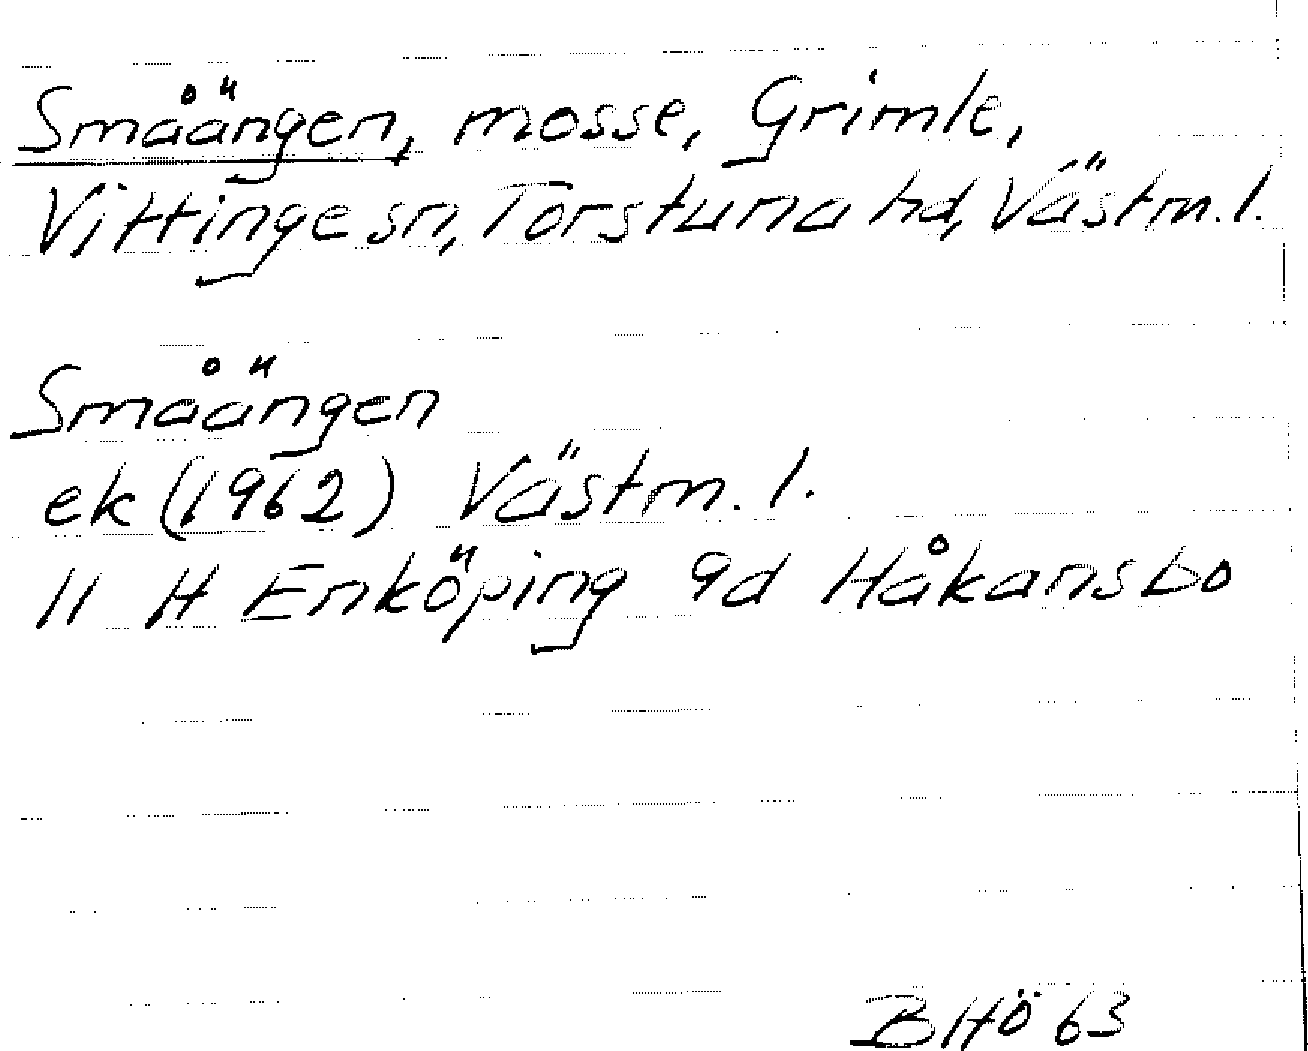 Småängen, mosse, Grimle,
Vittinge sn, Torstuna hd, Västm. l.
Småängen
ek (1962) Västm. l.
11 H Enköping 9d Håkansbo
BHÖ 63